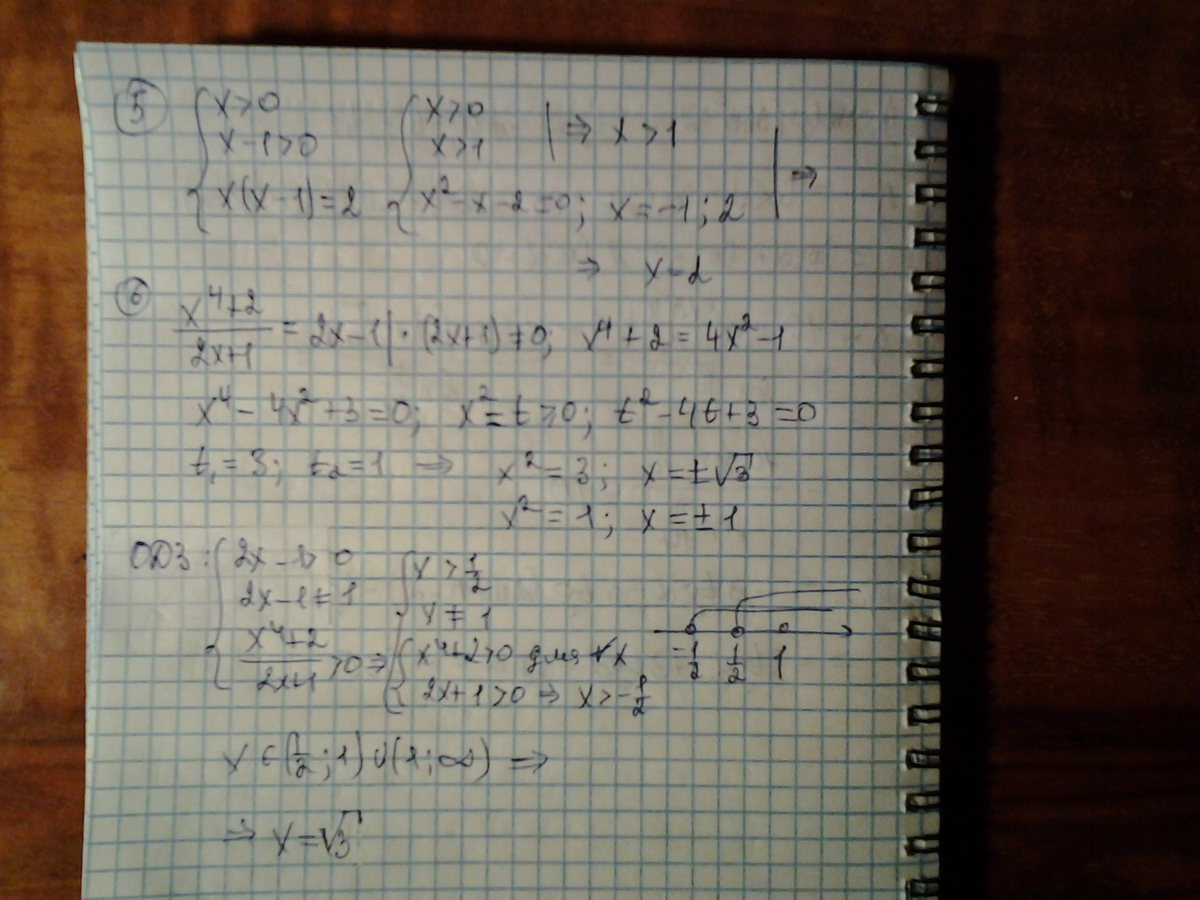 5 { x>0 { x>0 | ⇒ x>1
x-1>0 x>1
x(x-1)=2 x²-x-2=0; x=-1; 2 | ⇒
⇒ x=2
6 (x⁴+2)/(2x+1) = 2x-1 | · (2x+1) ≠ 0; x⁴+2=4x²-1
x⁴-4x²+3=0; x²=t>0; t²-4t+3=0
t₁=3; t₂=1 ⇒ x²=3; x=±√3
x²=1; x=±1
ОДЗ: { 2x-1>0 { x>1/2
2x-1≠1 x≠1
(x⁴+2)/(2x+1)>0 ⇒ { x⁴+2>0 для ∀x
2x+1>0 ⇒ x>-1/2
-1/2 1/2 1
x∈(1/2;1)∪(1;∞) ⇒
⇒ x=√3